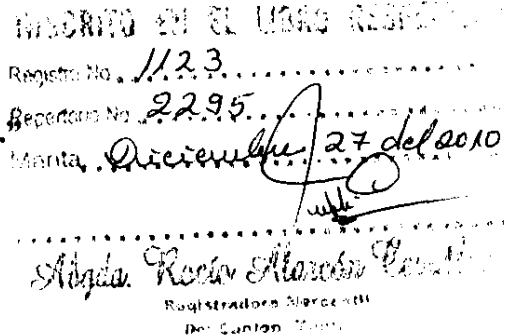 INSCRITO EN EL LIBRO
Registro No. 1123
Repertorio No. 2295
Manta, Diciembre 27 del 2010
Abgda. Rocío Alarcón
Registradora Mercantil
Del Canton